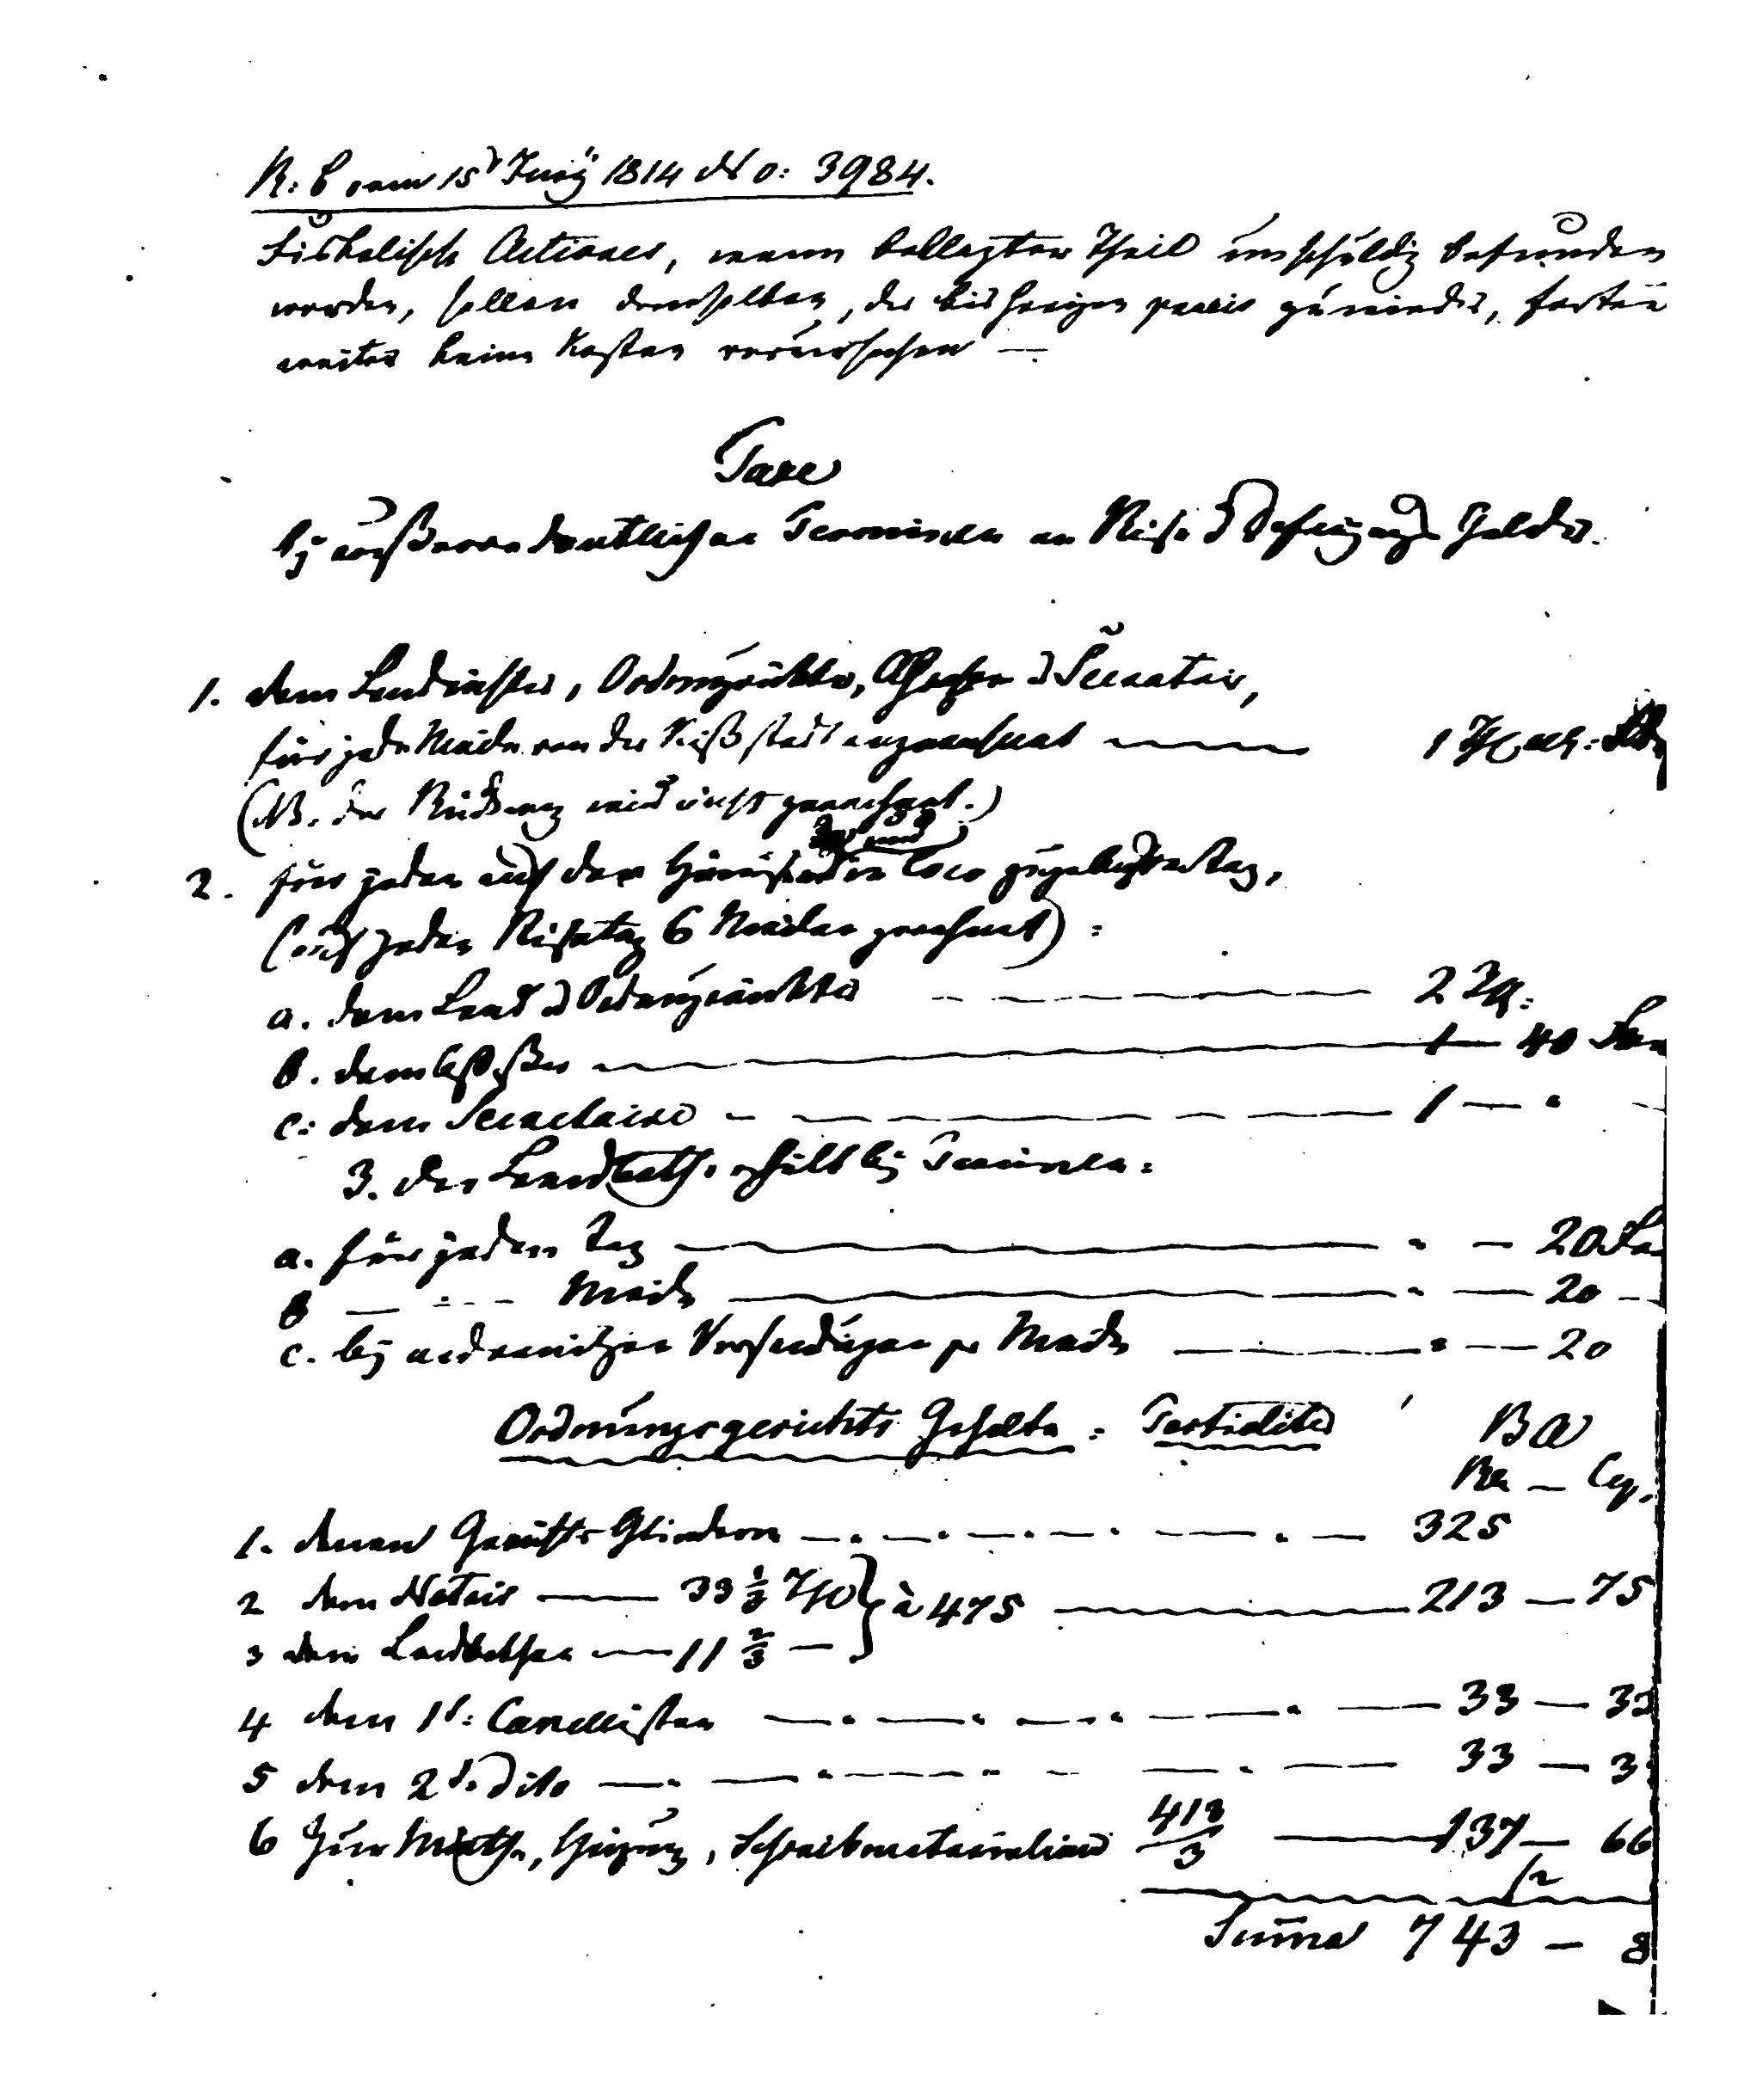 R: B vom 15 Juny 1814 No: 3984.
Fiskalische Actiones, wenn beklagter Theil unschuldig befunden
worden, sollen demselben, der bisherigen praxis zuwieder, fortan
weiter keine Kosten verursachen —
Taxe
bey außerordentlichen Terminen an Reise & Zehrungs Gelder.
1. dem Landrichter, Ordnungsrichter, Assessor & Secretair,
für jede Meile von der Kreißstadt angerechnet — 1
(NB. der Rückweg wird nicht gerechnet.)
2. für jeden auf der Hinreise in Loco zugebrachten Tag,
(auf jeden Reisetag 6 Meilen gerechnet) :
a. dem Land & Ordnungsrichter — 2
b. dem Assessor — 1 — 40
c: dem Secretaire — 1 —
3. der Landbothe erhält bey Terminen:
a. für jeden Tag — 20
b — Meile — 20 —
c. bey anderweitigen Versendungen pr Meile — 20
Ordnungsgerichts Gehalte : Tertialiter B A
Rbl — Cop.
1. denen Gerichts Gliedern — 325
2 dem Notair — 33 1/3 } à 475 — 213 — 75
3 dem Landbothen — 11 2/3 —
4 dem 1t: Cancellisten — 33 — 33
5 dem 2t. Dito — 33 — 3
6 Zur Miethe, Heizung, Schreibmaterialien 413/3 — 137 — 66
Summa 743 — 8